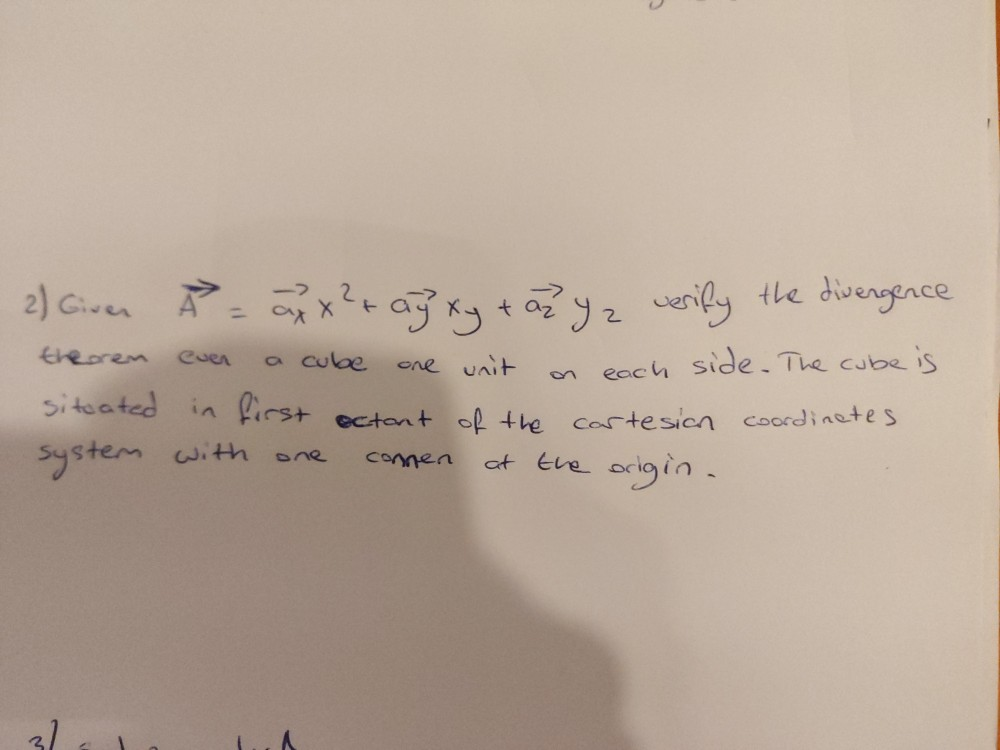 2) Given A⃗ = a⃗x x² + a⃗y xy + a⃗z yz verify the divergence
theorem over a cube one unit on each side. The cube is
situated in first octant of the cartesian coordinates
system with one corner at the origin.
3)